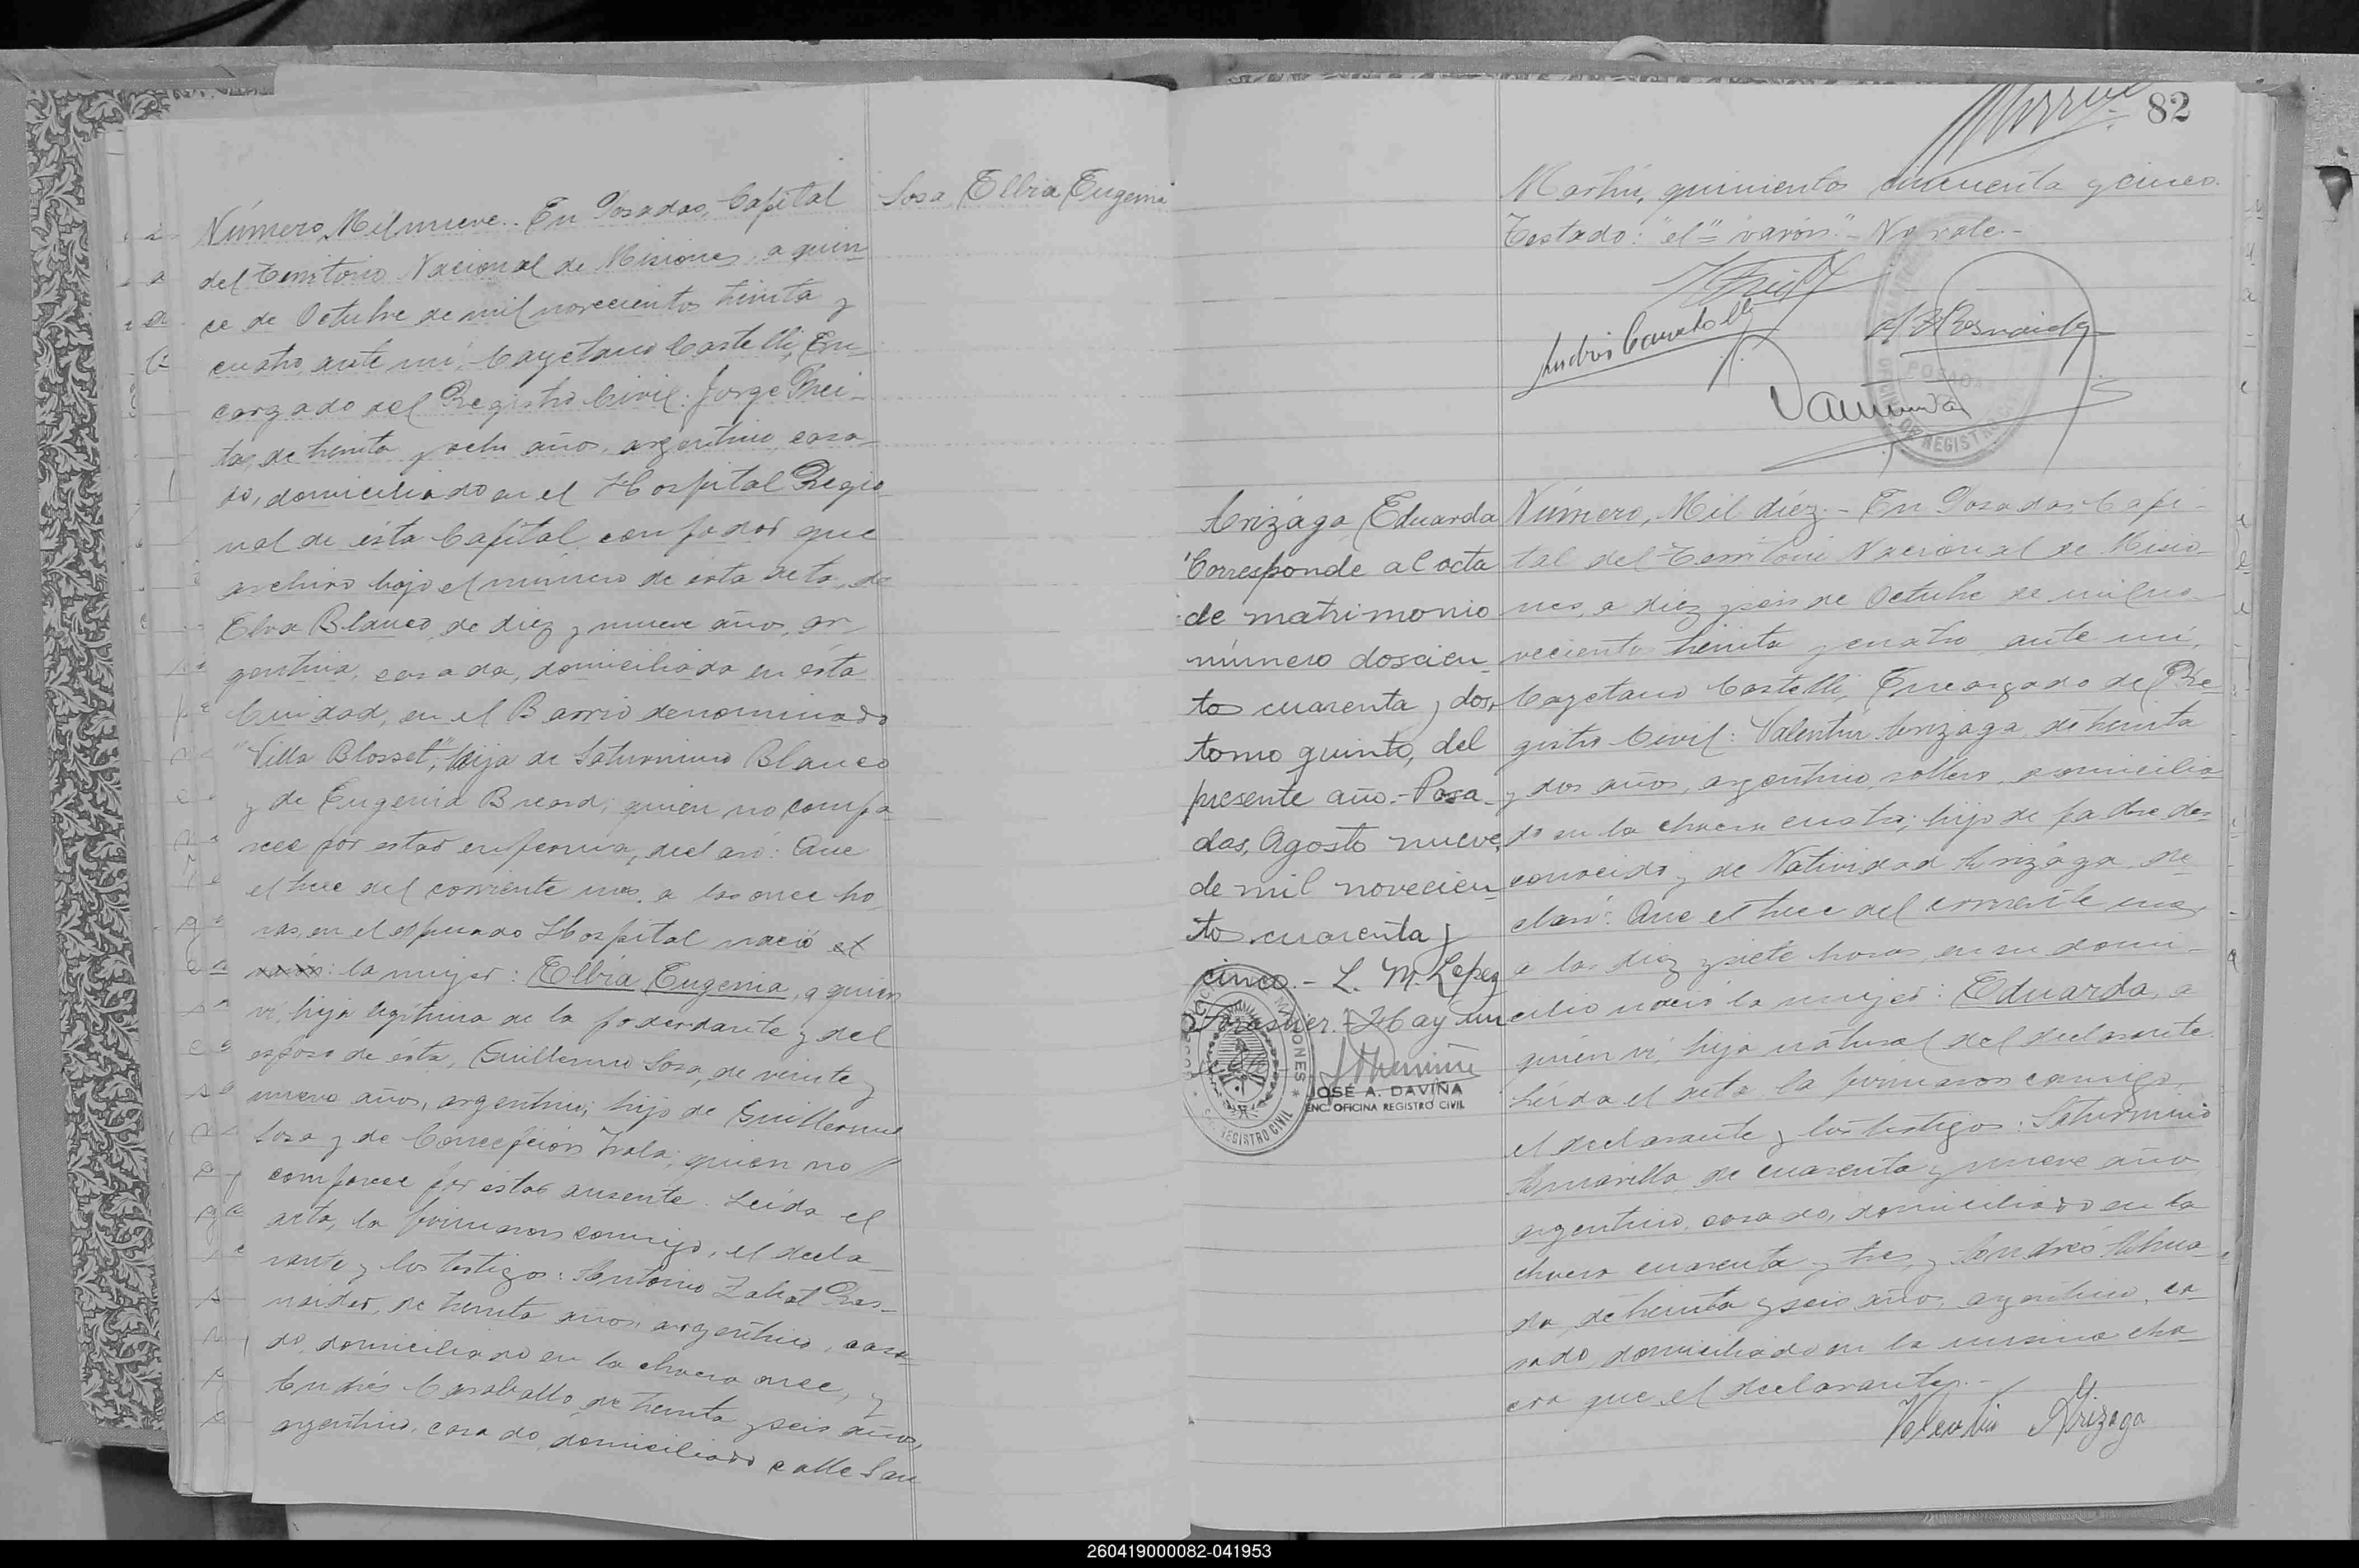 Sosa Elbia Eugenia
Número, Mil nueve.. En Posadas, Capital
del Territorio Nacional de Misiones, a quin
ce de Octubre de mil novecientos treinta y
cuatro, ante mi, Cayetano Castelli, En
cargado del Registro Civil: Jorge Frei-
tas, de treinta y ocho años, argentino, casa-
do, domiciliado en el Hospital Regio
nal de ésta Capital, con poder que
archivo bajo el número de ésta acta, de
Elva Blanco, de diez y nueve años, ar
gentina, casada, domiciliada en ésta
Ciudad, en el Barrio denominado
"Villa Blosset", hija de Saturnino Blanco
y de Eugenia Breard; quien no compa
rece por estar enferma, declaró: Que
el trece del corriente mes, a las once ho
ras, en el expresado Hospital nació el
varón: la mujer: Elbia Eugenia, a quien
ví, hija legítima de la poderdante y del
esposo de ésta, Guillermo Sosa, de veinte y
nueve años, argentino; hijo de Guillermo
Sosa y de Concepción Irala; quien no
comparece por estar ausente. Leída el
acta, la firmaron conmigo, el decla-
rante y los testigos: Antonio Zabat Ras-
naider, de treinta años, argentino, casa
do, domiciliado en la chacra once, y
Andrés Caraballo, de treinta y seis años,
argentino, casado, domiciliado calle San
82
Martín, quinientos cincuenta y cinco.
Testado: "el" "varón" - No vale.-
POSADAS
REGISTRO
Arizága, Eduarda
Corresponde al acta
de matrimonio
número doscien
tos cuarenta y dos,
tomo quinto, del
presente año.- Posa
das, Agosto nueve,
de mil novecien
tos cuarenta y
cinco.- L. M. Lopez
Forastier.- Hay un
MISIONES
REGISTRO CIVIL
JOSÉ A. DAVIÑA
ENC. OFICINA REGISTRO CIVIL
Número, Mil diéz.- En Posadas Capi-
tal del Territorio Nacional de Misio-
nes, a diez y seis de Octubre de mil no-
vecientos treinta y cuatro, ante mí,
Cayetano Castelli, Encargado del Re
gistro Civil: Valentín Arizaga, de treinta
y dos años, argentino, soltero, domicilia
do en la chacra cuatro; hijo de padre des
conocido y de Natividad Arizága, de
claró: Que el trece del corriente mes,
a las diez y siete horas, en su domi-
cilio nació la mujer: Eduarda, a
quien ví, hija natural del declarante.
Leída el acta la firmaron conmigo,
el declarante y los testigos: Saturnino
Amarilla, de cuarenta y nueve años
argentino, casado, domiciliado en la
chacra cuarenta y tres, y Andrés Ahua-
da, de treinta y seis años, argentino, ca-
sado, domiciliado en la misma cha
cra que el declarante.-
Valentin Arizaga
260419000082-041953